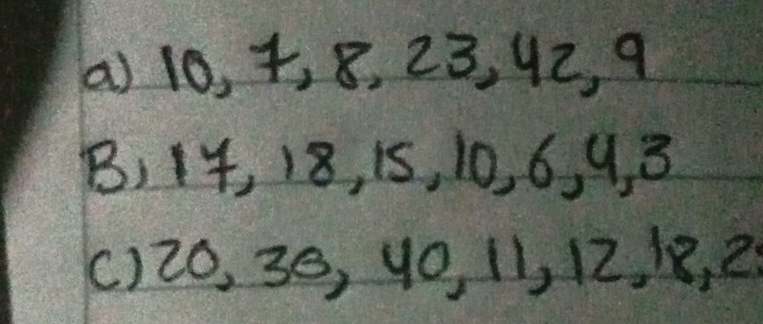 a) 10, 7, 8, 23, 42, 9
B) 17, 18, 15, 10, 6, 4, 3
C) 20, 30, 40, 11, 12, 18,